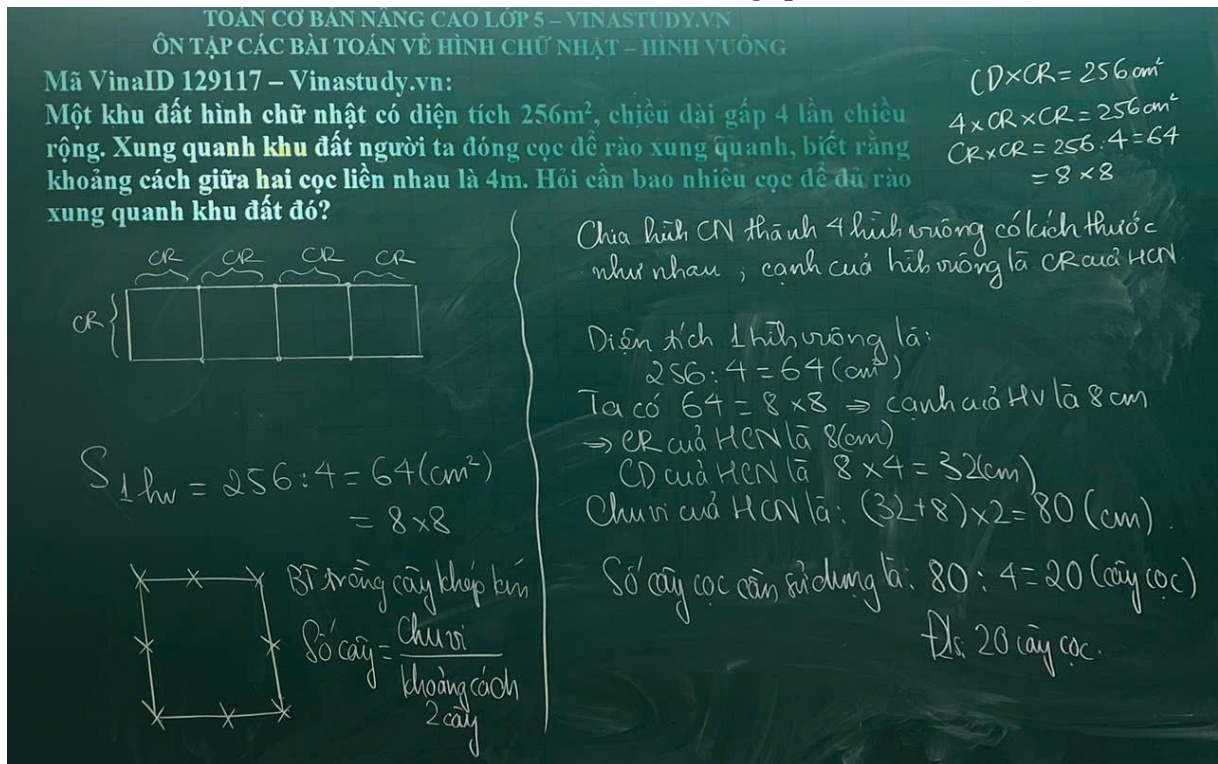 TOÁN CƠ BẢN NÂNG CAO LỚP 5 – VINASTUDY.VN
ÔN TẬP CÁC BÀI TOÁN VỀ HÌNH CHỮ NHẬT – HÌNH VUÔNG
Mã VinaID 129117 – Vinastudy.vn:
Một khu đất hình chữ nhật có diện tích 256m², chiều dài gấp 4 lần chiều
rộng. Xung quanh khu đất người ta đóng cọc để rào xung quanh, biết rằng
khoảng cách giữa hai cọc liền nhau là 4m. Hỏi cần bao nhiêu cọc để đủ rào
xung quanh khu đất đó?
CD×CR = 256 cm²
4×CR×CR = 256 cm²
CR×CR = 256:4 = 64
= 8×8
CR CR CR CR
CR
S 1 hv = 256:4 = 64 (cm²)
= 8×8
BT trồng cây khép kín
Số cây = Chu vi
khoảng cách
2 cây
Chia hình CN thành 4 hình vuông có kích thước
như nhau, cạnh cuả hình vuông là CR cuả HCN
Diện tích 1 hình vuông là:
256:4 = 64 (cm²)
Ta có 64 = 8×8 ⇒ cạnh cuả HV là 8 cm
⇒ CR cuả HCN là 8(cm)
CD cuả HCN là 8 × 4 = 32(cm)
Chu vi cuả HCN là: (32+8)×2 = 80 (cm).
Số cây cọc cần sử dụng là: 80 : 4 = 20 (cây cọc)
Đs: 20 cây cọc.